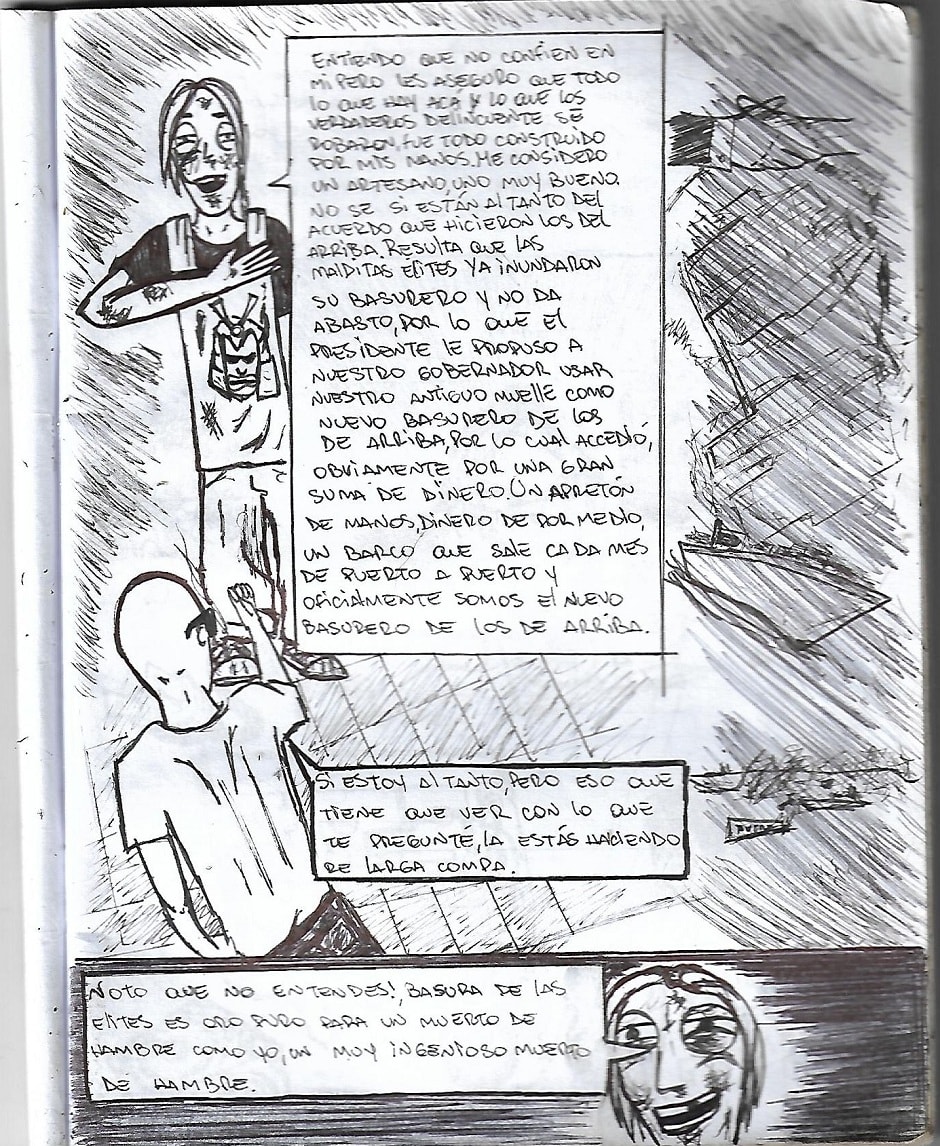 ENTIENDO QUE NO CONFIEN EN
MI PERO LES ASEGURO QUE TODO
LO QUE HAY ACÁ Y LO QUE LOS
VERDADEROS DELINCUENTE SE
ROBARON, FUE TODO CONSTRUIDO
POR MIS MANOS. ME CONSIDERO
UN ARTESANO, UNO MUY BUENO.
NO SE SI ESTÁN AL TANTO DEL
ACUERDO QUE HICIERON LOS DEL
ARRIBA. RESULTA QUE LAS
MALDITAS ELITES YA INUNDARON
SU BASURERO Y NO DA
ABASTO, POR LO QUE EL
PRESIDENTE LE PROPUSO A
NUESTRO GOBERNADOR USAR
NUESTRO ANTIGUO MUELLE COMO
NUEVO BASURERO DE LOS
DE ARRIBA, POR LO CUAL ACCEDIÓ,
OBVIAMENTE POR UNA GRAN
SUMA DE DINERO. UN APRETÓN
DE MANOS, DINERO DE POR MEDIO,
UN BARCO QUE SALE CADA MES
DE PUERTO A PUERTO Y
OFICIALMENTE SOMOS EL NUEVO
BASURERO DE LOS DE ARRIBA.
SI ESTOY AL TANTO, PERO ESO QUE
TIENE QUE VER CON LO QUE
TE PREGUNTÉ, LA ESTÁS HACIENDO
RE LARGA COMPA.
NOTO QUE NO ENTENDES!, BASURA DE LAS
ELITES ES ORO PURO PARA UN MUERTO DE
HAMBRE COMO YO, UN MUY INGENIOSO MUERTO
DE HAMBRE.